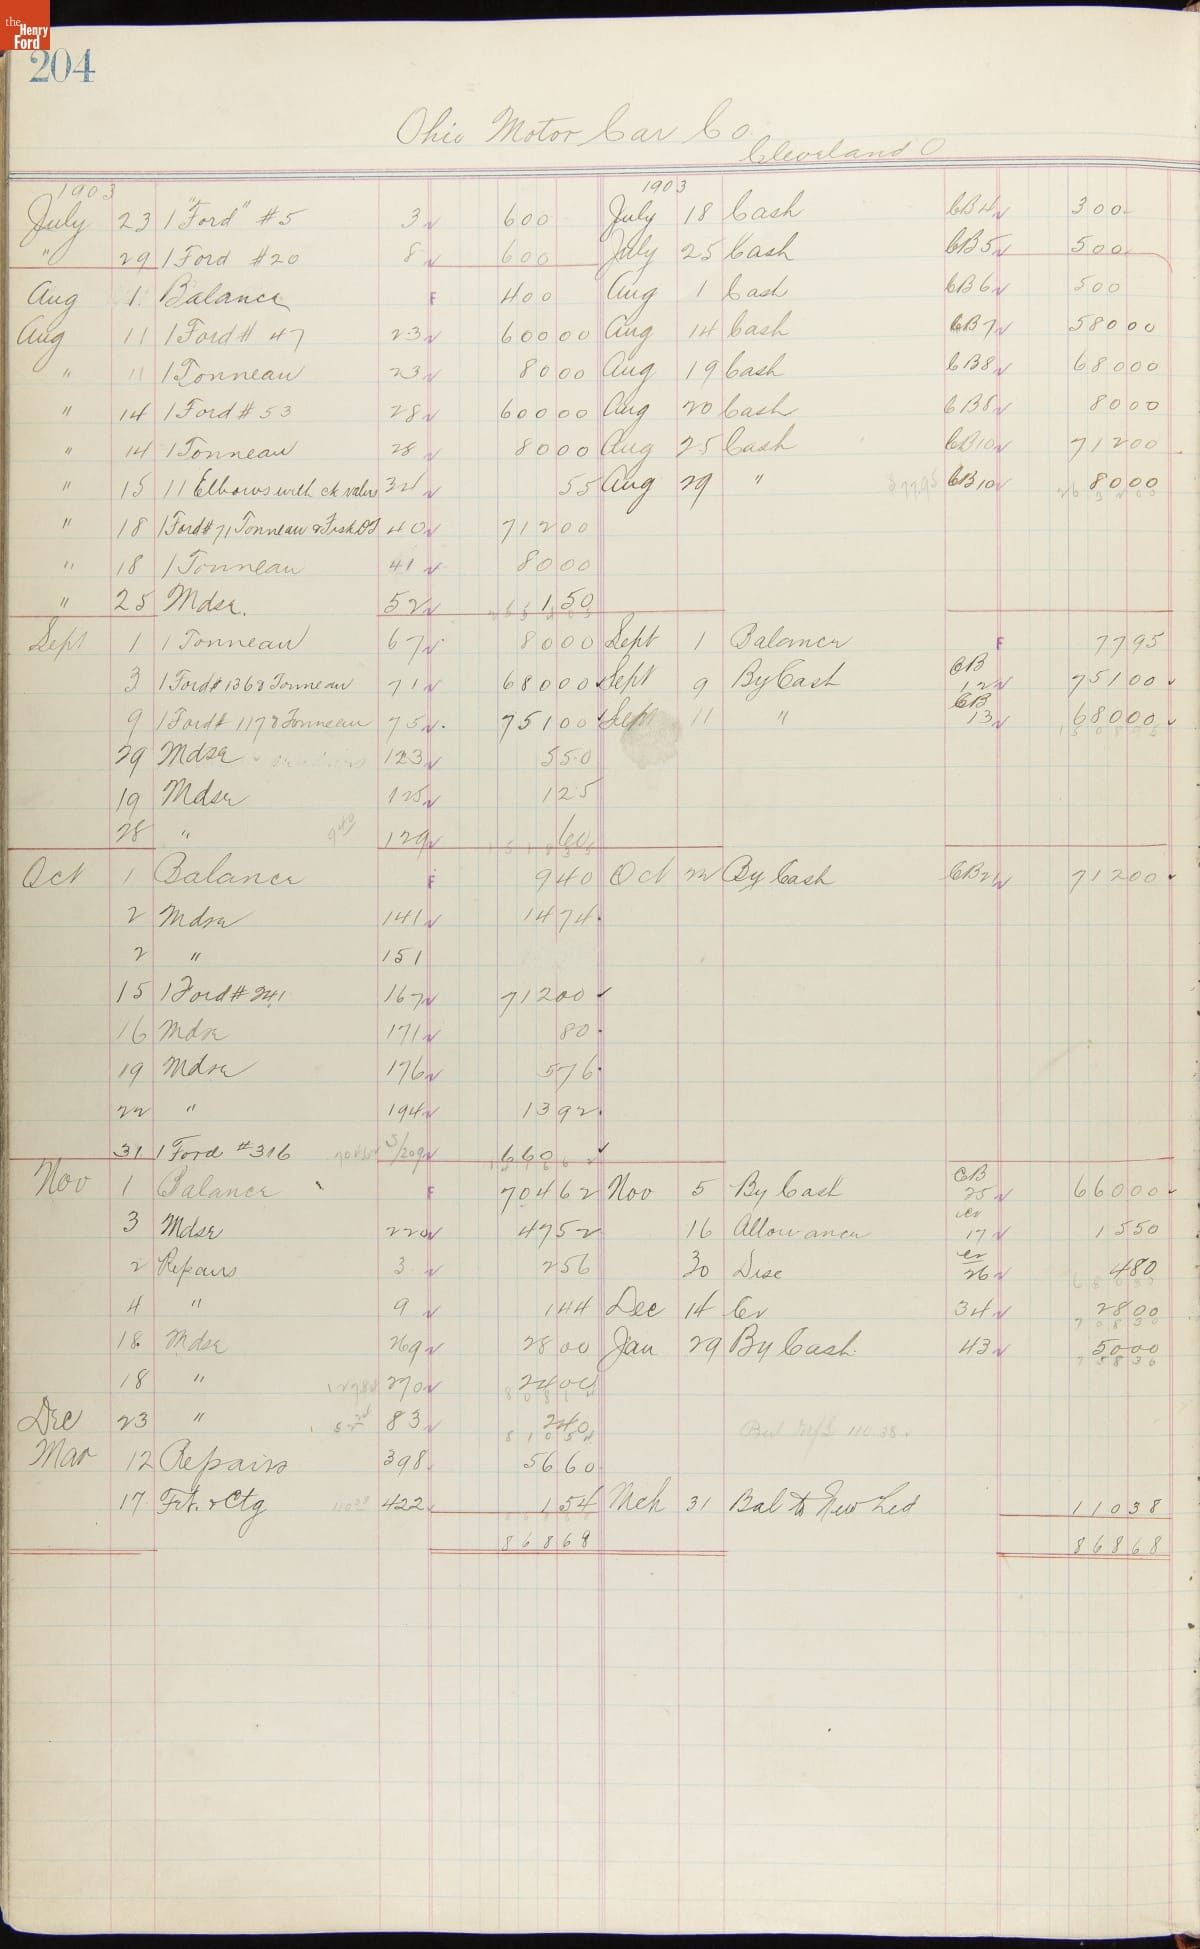 the Henry Ford
204
Ohio Motor Car Co.
Cleveland O
1903 1903
July 23 1 "Ford" #5 3 600 July 18 Cash CB4 300
" 29 1 Ford #20 8 600 July 25 Cash CB5 500
Aug 1 Balance F 400 Aug 1 Cash CB6 500
Aug 11 1 Ford # 47 23 600 00 Aug 14 Cash CB7 580 00
" 11 1 Tonneau 23 80 00 Aug 19 Cash CB8 680 00
" 14 1 Ford # 53 28 600 00 Aug 20 Cash CB8 80 00
" 14 1 Tonneau 28 80 00 Aug 25 Cash CB10 712 00
" 15 11 Elbows with ck valves 34 55 Aug 29 " CB10 80 00
" 18 1 Ford # 71 Tonneau & Fisk DT 40 712 00
" 18 1 Tonneau 41 80 00
" 25 Mdse. 52 1 50
Sept 1 1 Tonneau 67 80 00 Sept 1 Balance F 77 95
3 1 Ford # 136 & Tonneau 71 680 00 Sept 9 By Cash CB 12 751 00
9 1 Ford # 117 & Tonneau 75 751 00 Sept 11 " CB 13 680 00
29 Mdse 123 5 50
19 Mdse 125 1 25
28 " 129 60
Oct 1 Balance F 9 40 Oct 22 By Cash CB21 712 00
2 Mdse 141 14 74
2 " 151
15 1 Ford # 241 167 712 00
16 Mdse 171 80
19 Mdse 176 5 76
22 " 194 13 92
31 1 Ford #316 S/209 660
Nov 1 Balance F 704 62 Nov 5 By Cash CB 25 660 00
3 Mdse 220 47 52 16 Allowance cr 17 15 50
2 Repairs 3 2 56 30 Disc cr 26 4 80
4 " 9 1 44 Dec 14 Cr 34 28 00
18 Mdse 269 28 00 Jan 29 By Cash 43 50 00
18 " 270 24 00
Dec 23 " 83 2 40
Mar 12 Repairs 398 56 60
17 Frt. & Ctg 422 1 54 Mch 31 Bal to New Led 110 38
868 68 868 68